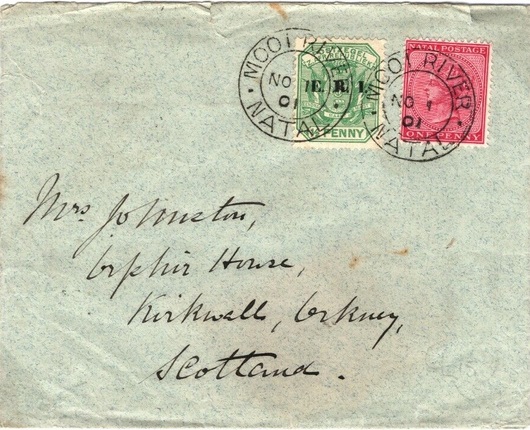 MOOI RIVER
NO 1
01
NATAL
POSTZEGEL
E. R. I.
PENNY
MOOI RIVER
NO 1
01
NATAL
NATAL POSTAGE
ONE PENNY
Mrs Johnston,
Orphir House,
Kirkwall, Orkney,
Scotland.